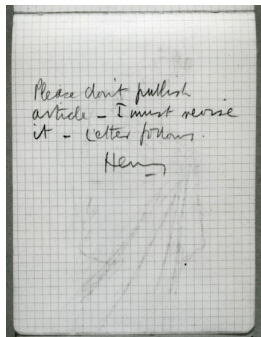 Please don't publish
article – I must revise
it – Letter follows.
Henry